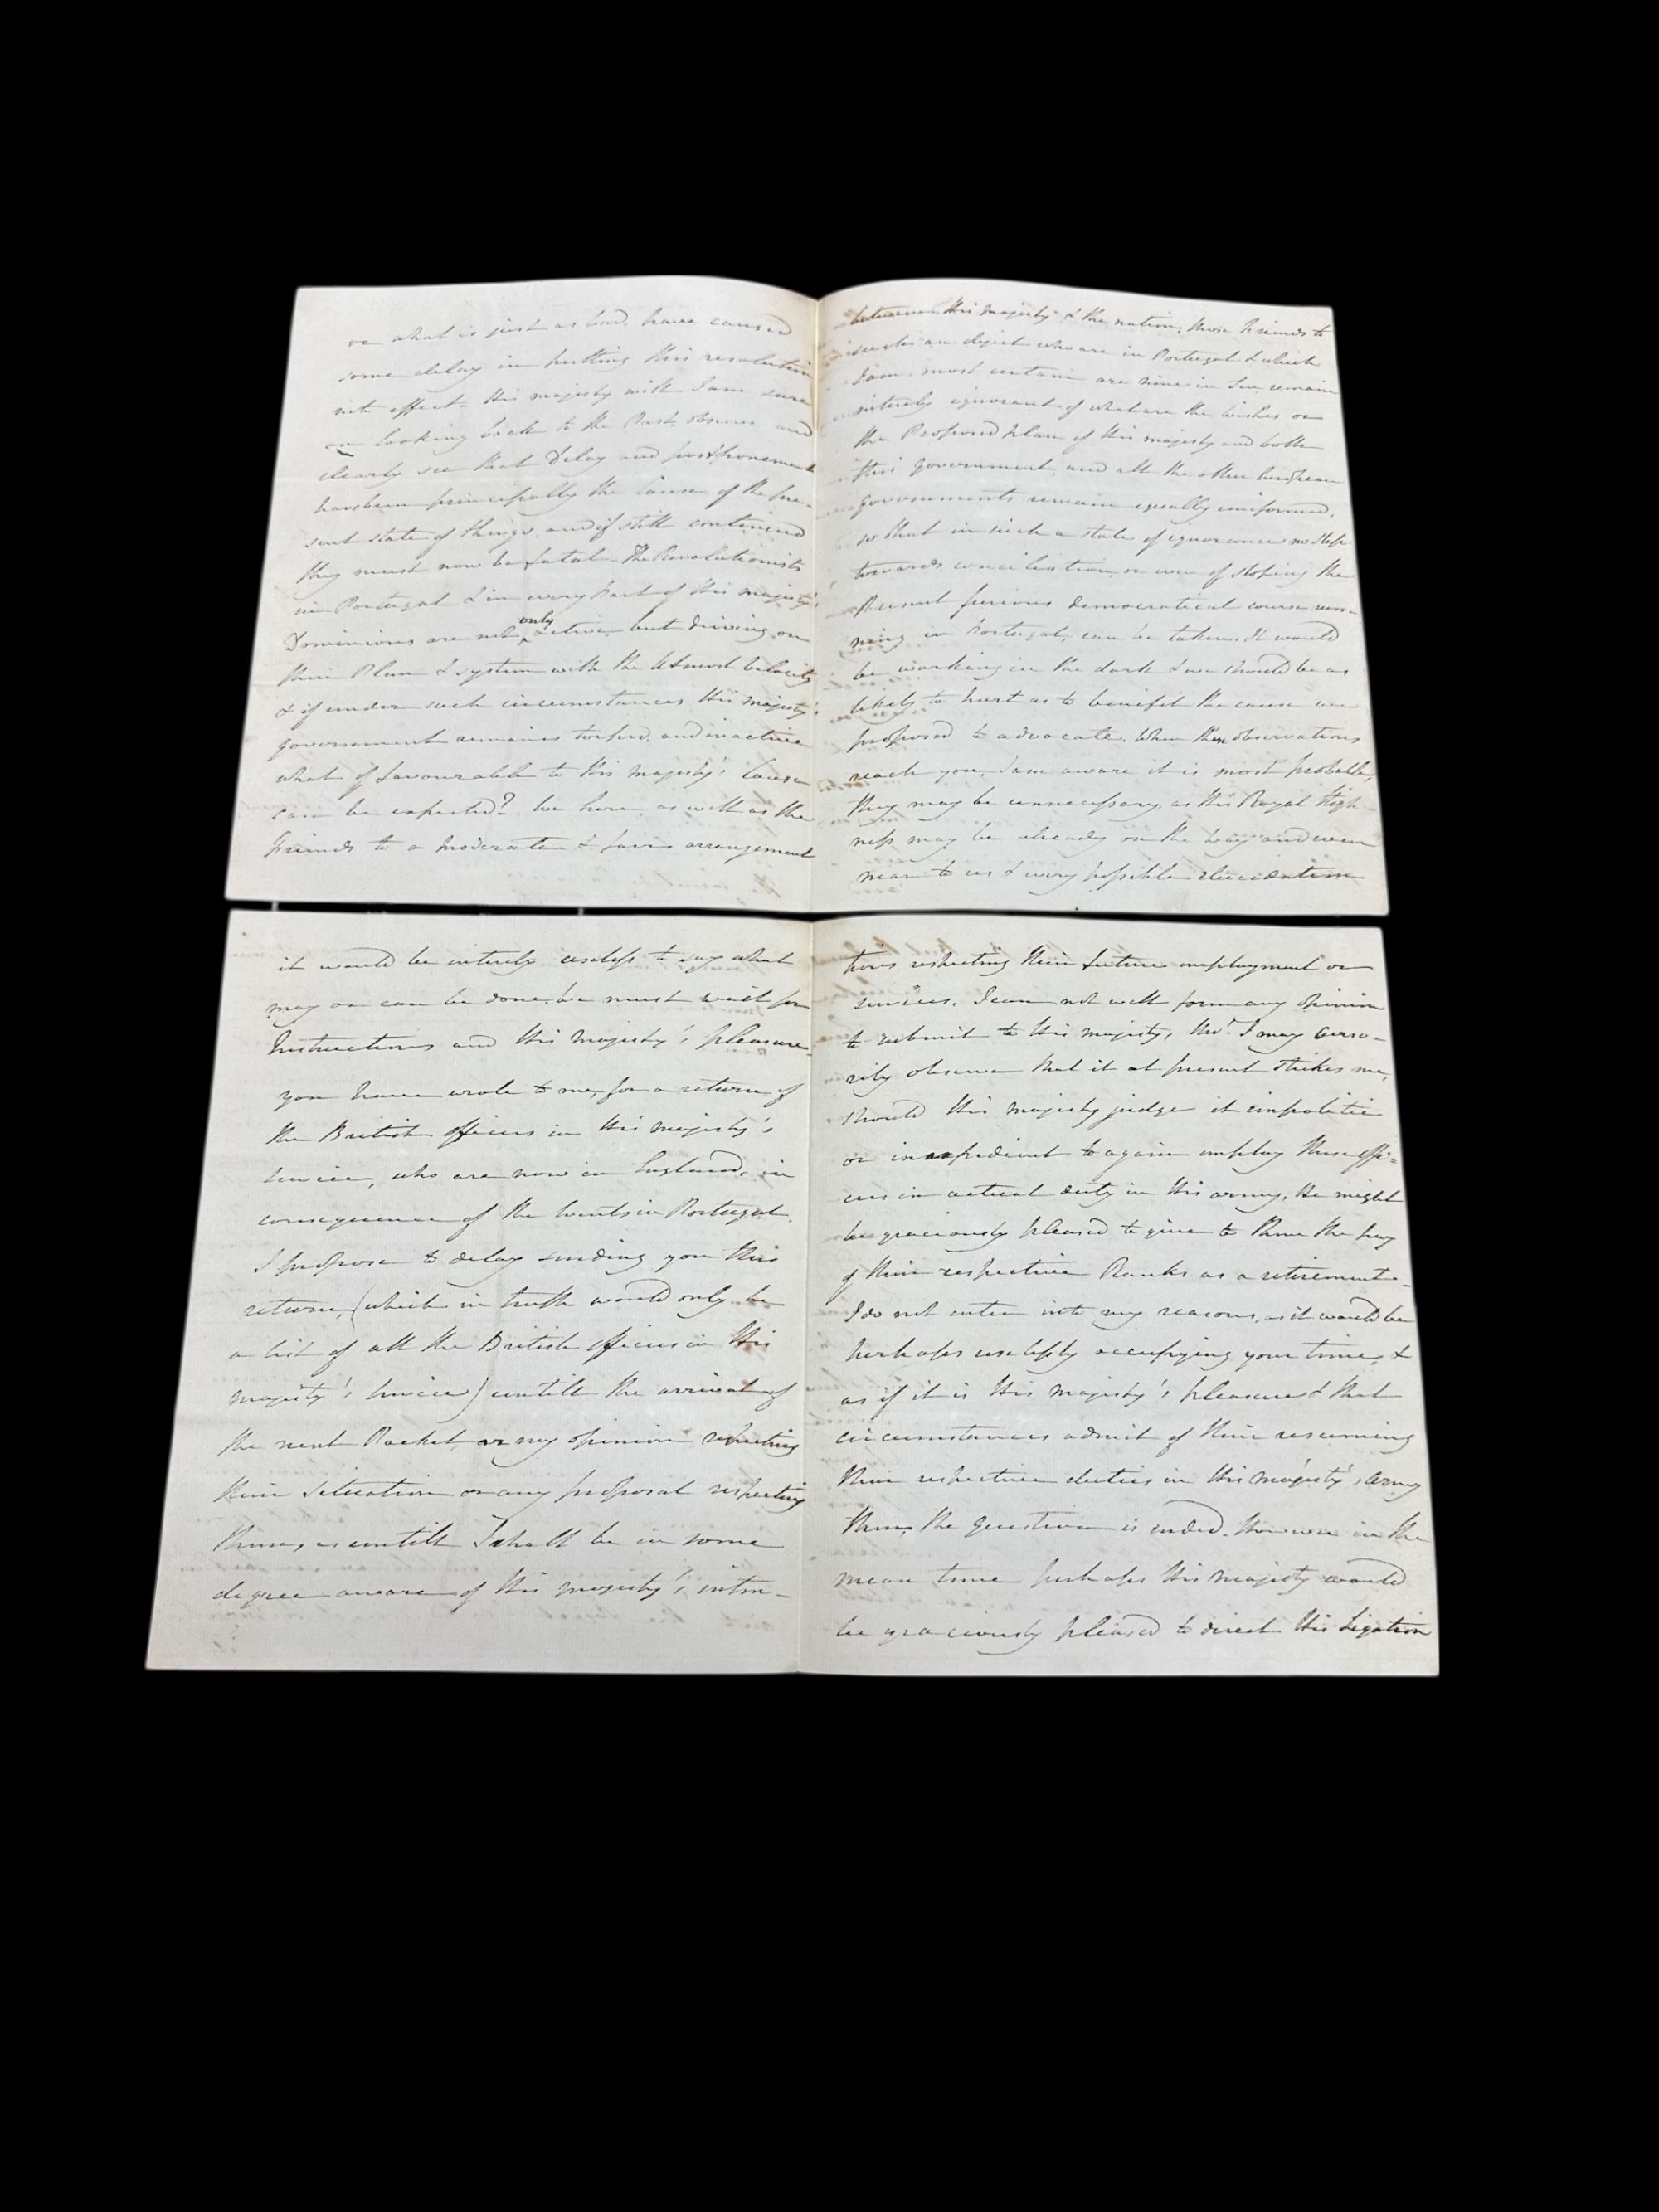 or what is just as bad, have caused
some delay in putting this resolution
into effect. His majesty will I am sure
on looking back to the Past, observe and
clearly see that Delay and postponement
have been principally the Cause of the pre-
sent state of things, and if still continued
they must now be fatal. The Revolutionists
in Portugal & in every Part of His majesty's
Dominions are not only active, but driving on
their Plan & system with the utmost velocity
& if under such circumstances His majesty's
government remains torpid, and inactive
what of favourable to His majesty's Cause
can be expected? We here, as well as the
Friends to a moderate & fair arrangement
between His majesty & the nation, those Friends to
such an object who are in Portugal & which
I am most certain are nine in Ten, remain
entirely ignorant of what are the wishes or
the Proposed plan of His majesty and both
this government, and all the other European
governments remain equally uninformed,
so that in such a state of ignorance no step
towards conciliation, or even of stoping the
Present furious democratical course run-
ning in Portugal, can be taken. It would
be working in the dark & we should be as
likely to hurt as to benifit the cause we
proposed to advocate. When these observations
reach you, I am aware it is most probable,
they may be unnecessary, as His Royal High-
ness may be already on the way and even
near to us & every possible elucidation
it would be entirely useless to say what
may or can be done, we must wait for
Instructions and His Majesty's pleasure.
you have wrote to me, for a return of
the British officers in His Majesty's
service, who are now in England, in
consequence of the Events in Portugal.
I propose to delay sending you this
return, (which in truth would only be
a list of all the British officers in His
majesty's service) untill the arrival of
the next Packet, or my opinion respecting
their situation or any proposal respecting
them, as untill I shall be in some
degree aware of His majesty's inten-
tions respecting their future employment or
services, I can not well form any opinion
to submit to His majesty, tho' I may curso-
rily observe that it at present strikes me,
should His majesty judge it impolitic
or inexpedient to again employ these offi-
cers in actual duty in His army, He might
be graciously pleased to give to them the pay
of their respective Ranks as a retirement.
I do not enter into my reasons, as it would be
perhaps uselessly occupying your time, &
as if it is His Majesty's pleasure & that
circumstances admit of their resuming
their respective duties in His Majesty's army
then, the question is ended. However in the
mean time perhaps His Majesty would
be graciously pleased to direct His Legation